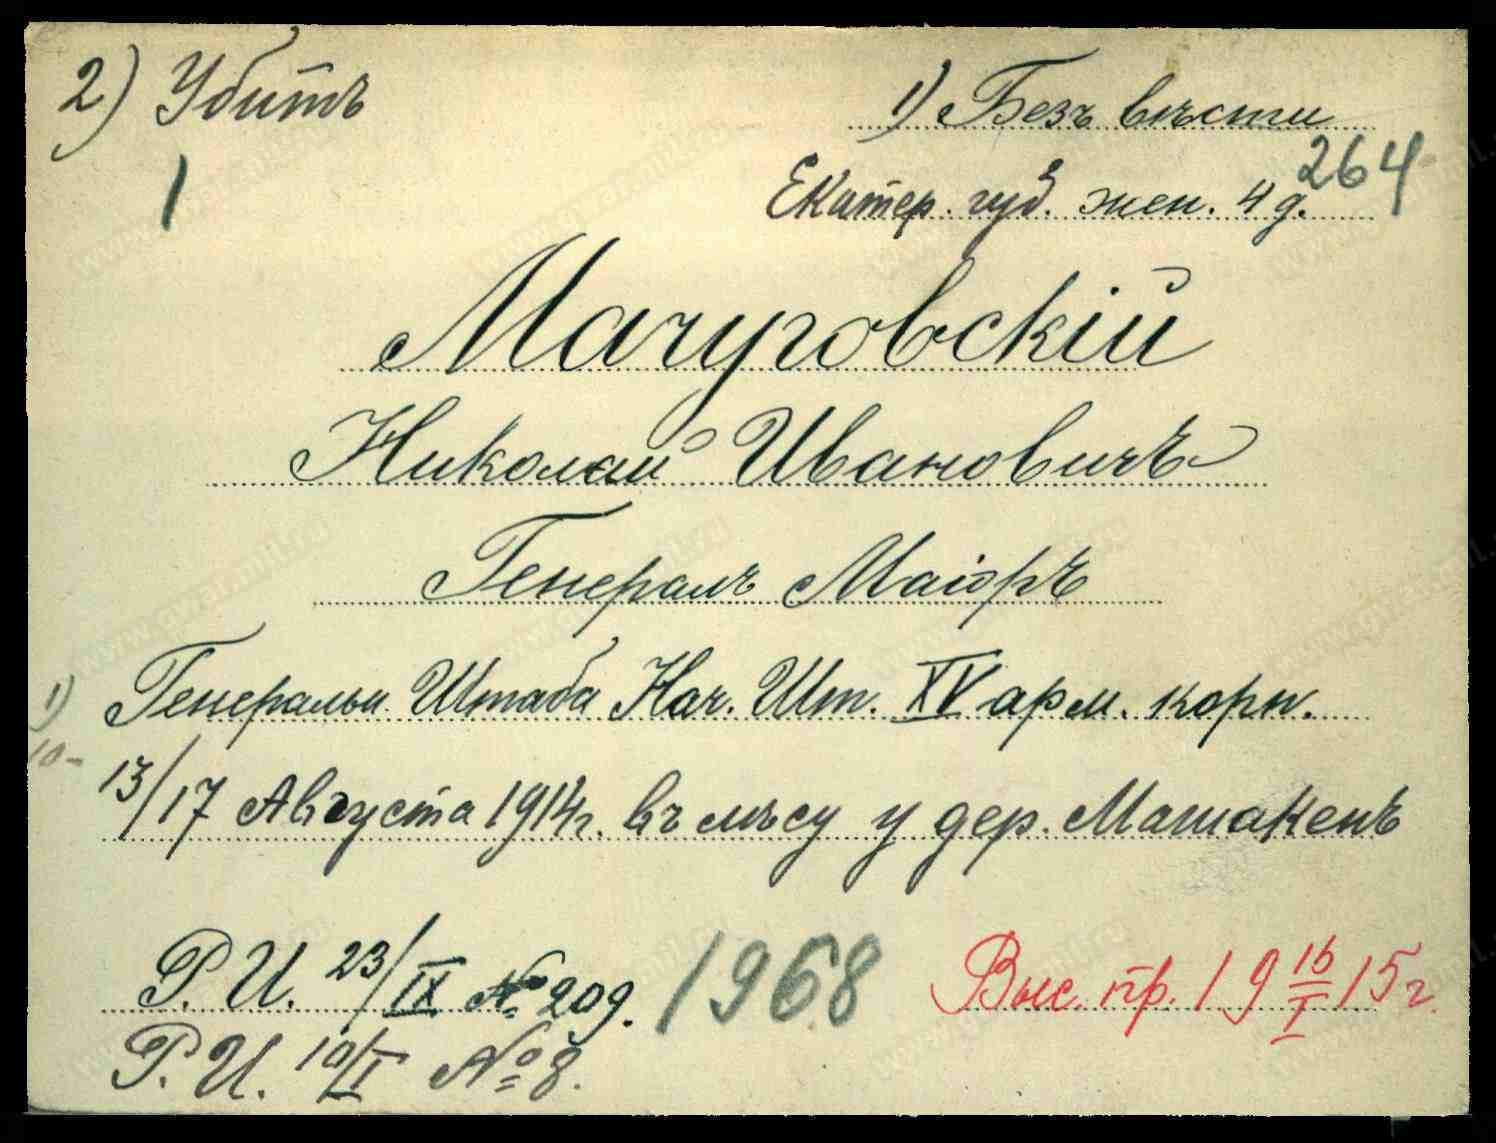 2) Убитъ
1) Безъ вѣсти
1
264
Екатер. губ. жен. 4 д.
Мачуговскій
Николай Ивановичъ
Генералъ Маіоръ
1) Генеральн. Штаба Нач. Шт. XV арм. корп.
10-
13/17 Августа 1914г. въ лѣсу у дер. Машакенъ
Р.И. 23/IX № 209. 1968 Выс. пр. 19 16/I 15 г.
Р.И. 10/I № 8.
www.gwar.mil.ru